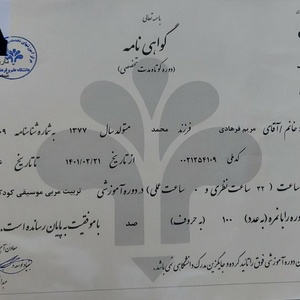 باسمه تعالی
گواهی نامه
(دوره کوتاه مدت تخصصی)
خانم / آقای مریم فرهادی فرزند محمد متولد سال ۱۳۷۷ به شماره شناسنامه
کد ملی ۰۰۲۱۲۵۴۱۰۹ از تاریخ ۱۴۰۱/۰۳/۲۱ تا تاریخ
ساعت ( ۲۲ ساعت نظری و ۰ ساعت عملی ) در دوره آموزشی تربیت مربی موسیقی کودک
دوره را با نمره (به عدد) ۱۰۰ (به حروف) صد با موفقیت به پایان رسانده است.
دوره آموزشی فوق را تائید کرده و جایگزین مدرک دانشگاهی نمی باشد.